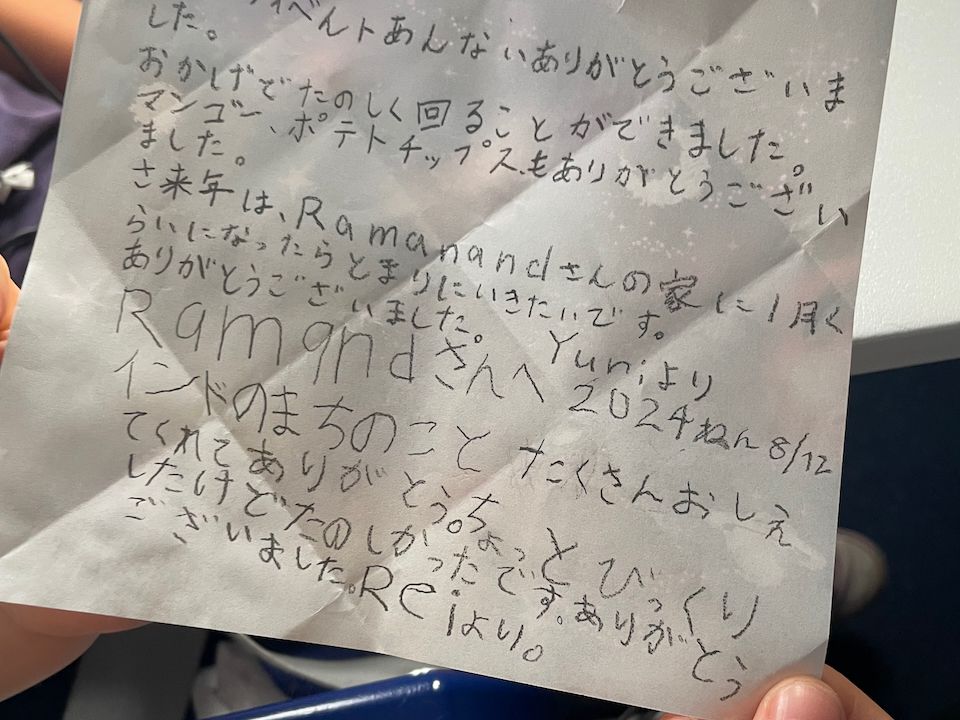 べんトあんないありがとうございま
した。
おかげでたのしく回ることができました。
マンゴー、ポテトチップスもありがとうござい
ました。
さ来年は、Ramanandさんの家に1月く
らいになったらとまりにいきたいです。
ありがとうございました。
Yuniより
2024ねん8/12
Ramandさんへ
インドのまちのことたくさんおしえ
てくれてありがとう。ちょっとびっくり
したけどたのしかったです。ありがとう
ございました。Reiより。